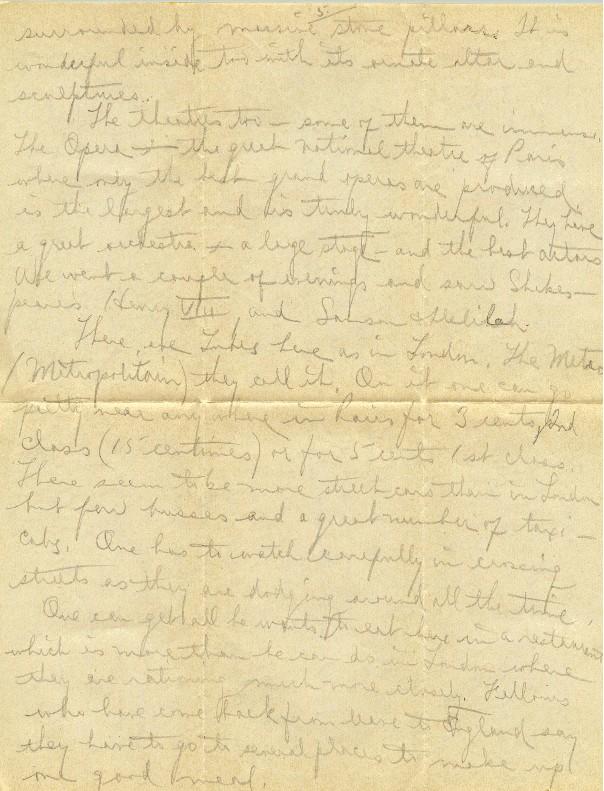 - 5 -
surrounded by massive stone pillars. It is
wonderful inside too with its ornate alter and
sculptures.
The theatres too - some of them are immense.
The Opera - the great national theatre of Paris
where only the best grand operas are produced,
is the largest and is truly wonderful. They have
a great orchestra & a large stage - and the best actors
We went a couple of evenings and saw Shakes-
peares Henry VIII and Samson & Delilah.
There are Tubes here as in London. The Metro
(Metropolitain) they call it. On it one can go
pretty near anywhere in Paris for 3 cents, 2nd
class (15 centimes) or for 5 cents 1st class.
There seem to be more street cars than in London
but few busses and a great number of taxi-
cabs. One has to watch carefully in crossing
streets as they are dodging around all the time.
One can get all he wants to eat here in a restaurant
which is more than he can do in London where
they are rationing much more closely. Fellows
who have come back from leave to England say
they have to go to several places to make up
one good meal.